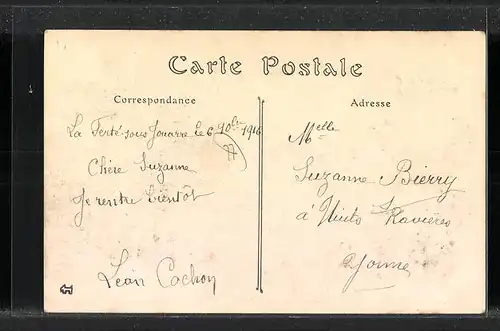 Carte Postale
Correspondance
La Ferté-sous Jouarre le 6 1916
Chère Suzanne
Je rentre bientôt
Léon Cochon
Adresse
Melle
Suzanne Bierry
à Nuits s/ Ravières
Yonne